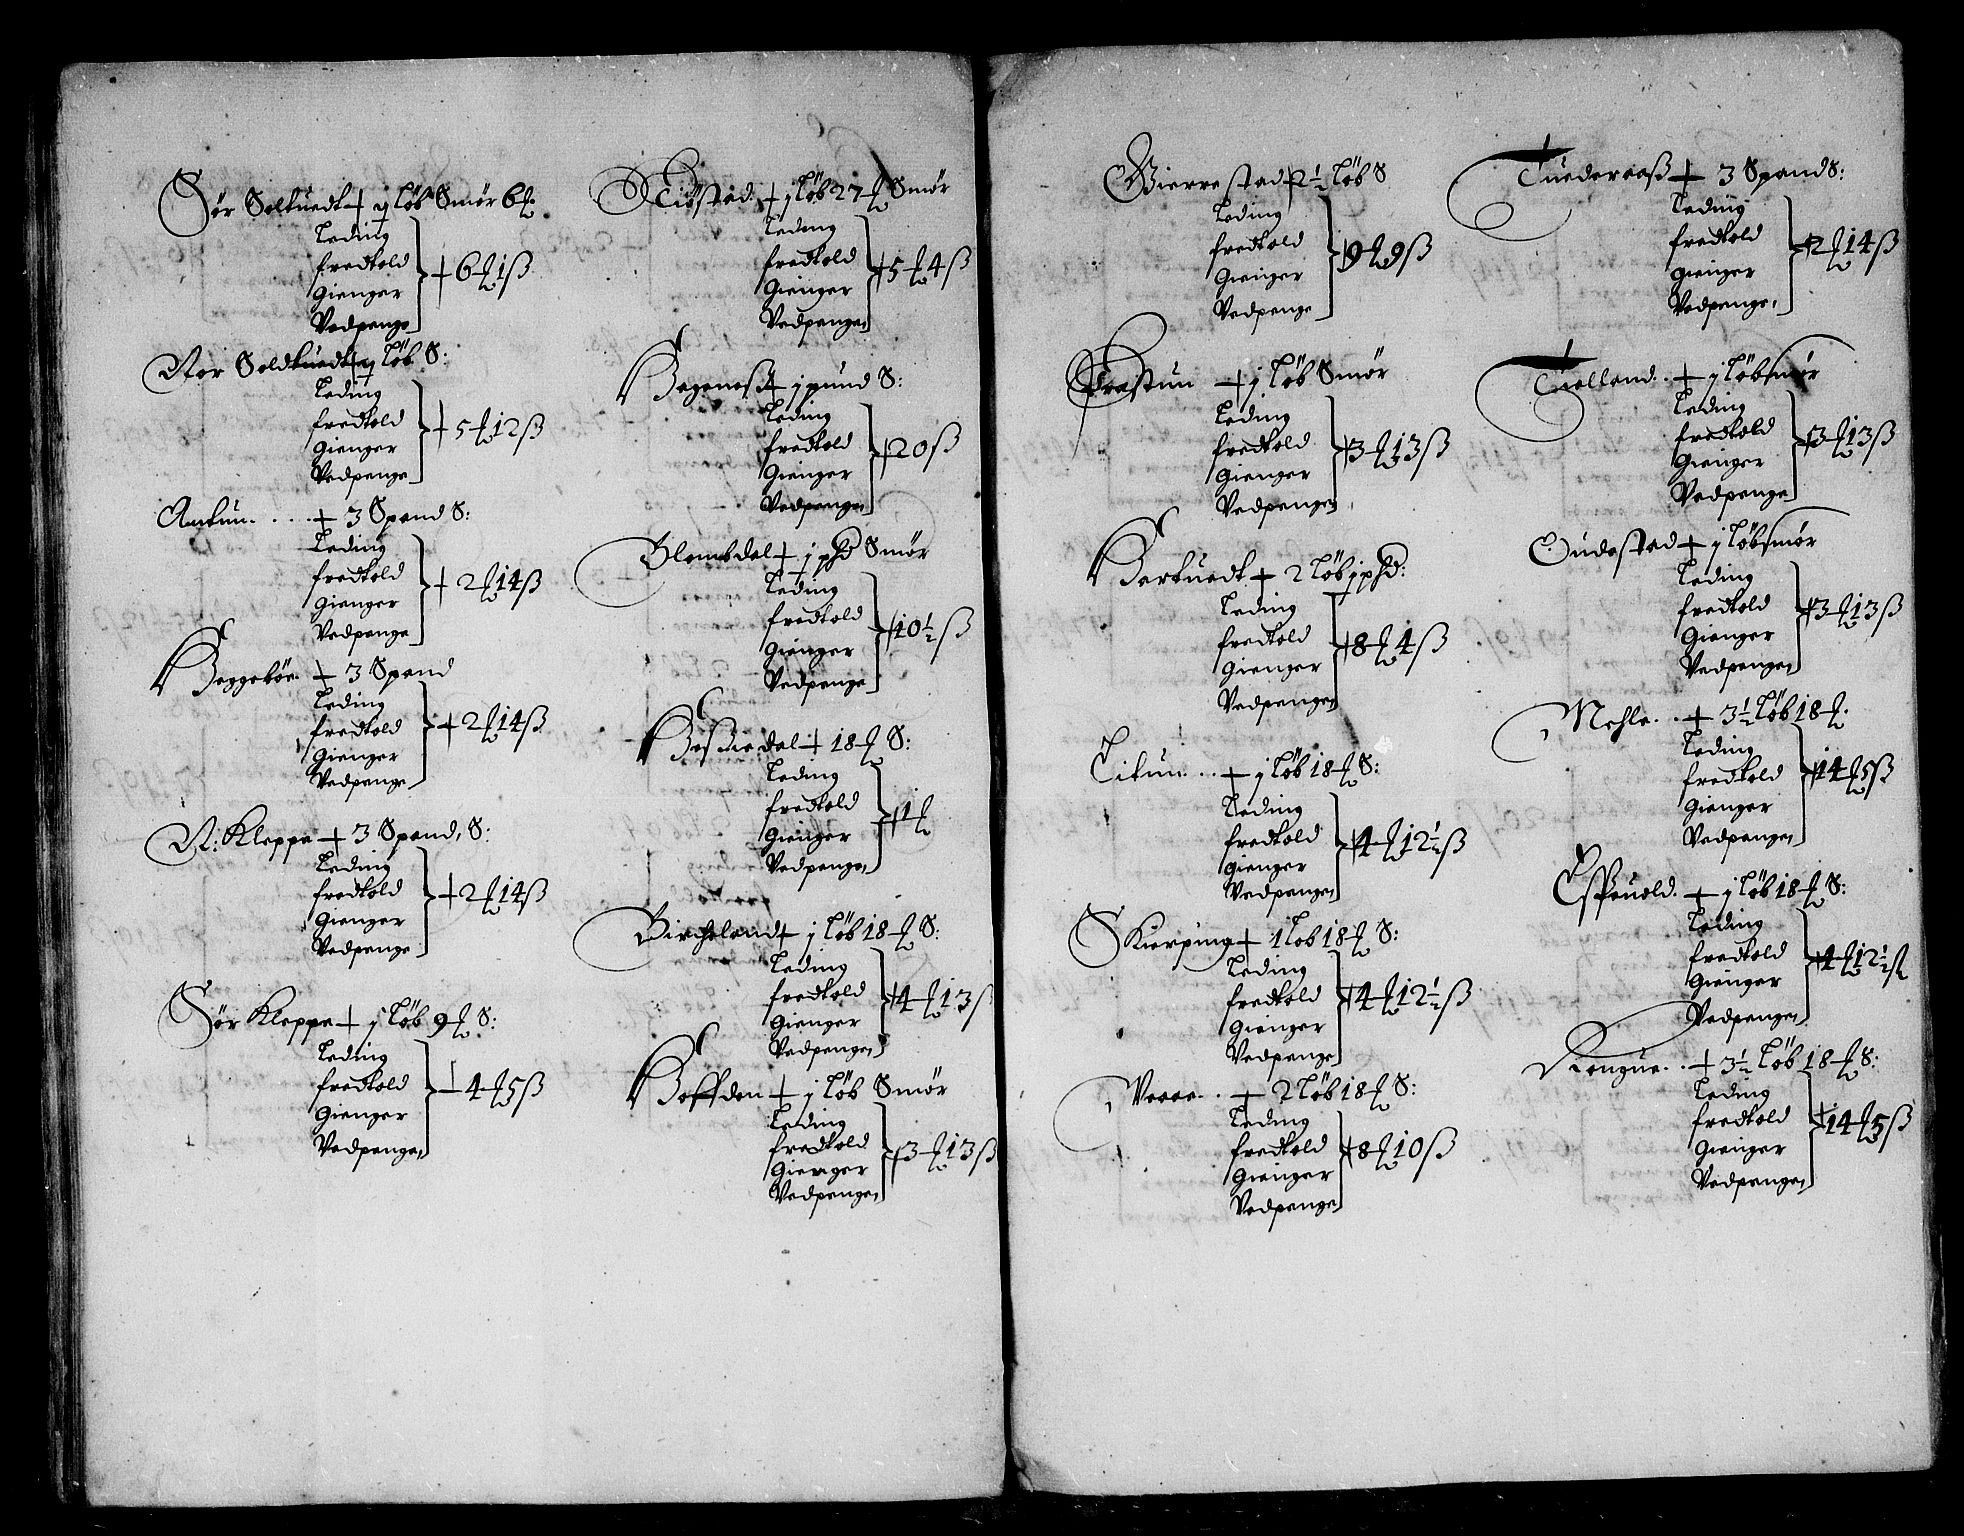 Sør Soltuedt + j Løb Smør 6 ℔:
Leding
fredtold
Gienger
Vedpenge
+ 6 ℔ 1 ß
Nør Soldtuedt + j Løb S:
Leding
fredtold
Gienger
Vedpenge
+ 5 ℔ 12 ß
Amtun. . . . + 3 Spand S:
Leding
fredtold
Gienger
Vedpenge
+ 2 ℔ 14 ß
Heggebøe. + 3 Spand
Leding
fredtold
Gienger
Vedpenge
+ 2 ℔ 14 ß
N: Kleppe + 3 Spand, S:
Leding
fredtold
Gienger
Vedpenge
+ 2 ℔ 14 ß
Sør Kleppe + j Løb 9 ℔ S:
Leding
fredtold
Gienger
Vedpenge,
+ 4 ℔ 5 ß
+ j Løb 27 ℔ Smør
Leding
fredtold
Gienger
Vedpenge,
+ 5 ℔ 4 ß
Hegeneß + j pund S:
Leding
fredtold
Gienger
Vedpenge,
+ 20 ß
Blembdal + j phd Smør
Leding
fredtold
Gienger
Vedpenge
+ 10 ½ ß
Heßiedal + 18 ℔ S:
Leding
fredtold
Gienger
Vedpenge,
+ 1 ℔
Bircheland + j Løb 18 ℔ S:
Leding
fredtold
Gienger
Vedpenge,
+ 4 ℔ 13 ß
Hoffden + j Løb Smør
Leding
fredtold
Gienger
Vedpenge,
+ 3 ℔ 13 ß
Bierrestad + 2 ½ Løb S
Leding
fredtold
Gienger
Vedpenge
+ 9 ℔ 9 ß
Frøstun + j Løb Smør
Leding
fredtold
Gienger
Vedpenge,
+ 3 ℔ 13 ß
Hertuedt + 2 Løb j phd:
Leding
fredtold
Gienger
Vedpenge,
+ 8 ℔ 4 ß
Titun. . . + j Løb 18 ℔ S:
Leding
fredtold
Gienger
Vedpenge,
+ 4 ℔ 12 ½ ß
Skierping + 1 Løb 18 ℔ S:
Leding
fredtold
Gienger
Vedpenge
+ 4 ℔ 12 ½ ß
. . + 2 Løb 18 ℔ S:
Leding
fredtold
Gienger
Vedpenge,
+ 8 ℔ 10 ß
Tuederaaß + 3 Spand S:
Leding
fredtold
Gienger
Vedpenge,
+ 2 ℔ 14 ß
Tielland. . + j Løb smør
Leding
fredtold
Gienger
Vedpenge
+ 3 ℔ 13 ß
Gudestad + j Løb smør
Leding
fredtold
Gienger
Vedpenge,
+ 3 ℔ 13 ß
Mehle. . + 3 ½ Løb 18 ℔.
Leding
fredtold
Gienger
Vedpenge,
+ 14 ℔ 5 ß
Espeuold. + j Løb 18 ℔ S:
Leding
fredtold
Gienger
Vedpenge,
+ 4 ℔ 12 ½ ß
Kongue. . + 3 ½ Løb 18 ℔ S:
Leding
fredtold
Gienger
Vedpenge,
+ 14 ℔ 5 ß